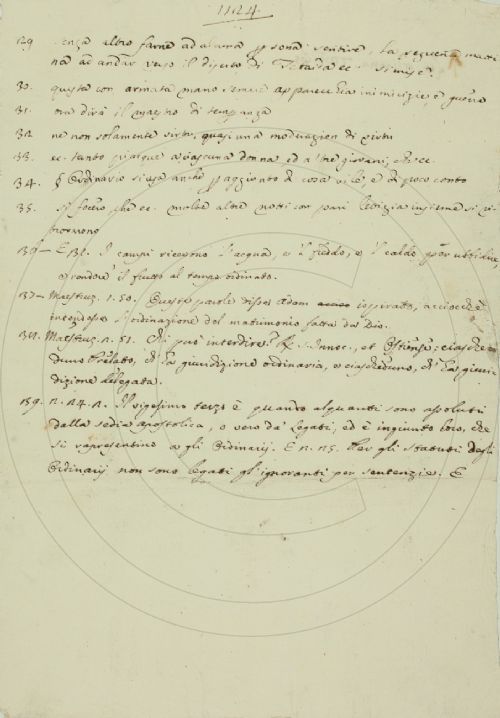 1124.
29 senza altro farne ad alcuna persona sentire, la seguente matti
na ad andar verso il di
30. questa con armata mano apparecchia inimicizie e guerra
31. ora dirà il maestro di temperanza
32. ne non solamente virtù, quasi una moderazion di virtù
33. ec. tanto piacque a ciascuna donna, ed a' tre giovani, che ec.
34. § Ordinario si usa anche per aggiunto di cosa vile, e di poco conto
35. Si fecero, che ec. molte altre notti con pari letizia insieme si ri
trovarono
136 — E I campi ricevono l'acqua, e 'l freddo, e 'l caldo per
a rendere il frutto al tempo ordinato.
137 — Maestruz. 1. 50. Queste parole disse Adam inspirato, acciocchè
intendesse l'ordinazione del matrimonio fatta da Dio.
Maestruz. 2. 51. Chi può interdire? R. S. Innoc., et Ostiense, ciasche
duno Prelato, ch' ha giurisdizione ordinaria, o ciascheduno, ch' ha giuris
dizione delegata.
139. Il vigesimo terzo è quando alquanti sono assoluti
dalla sedia apostolica, o vero da' Legati, ed è ingiunto loro, che
si rapresentino a gli Ordinarij. E Per gli statuti degli
Ordinarij non sono legati gl' ignoranti per sentenzie. E